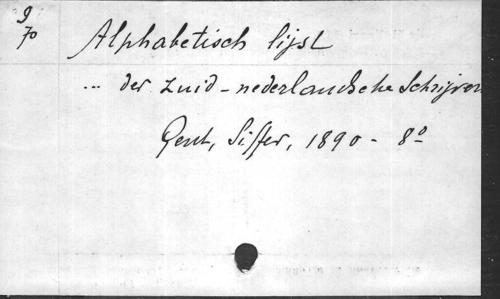 9
70
Alphabetisch lijst
... der Zuid-nederlandsche Schrijver
Gent, Siffer, 1890 - 8º